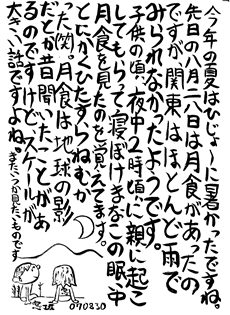 今年の夏はひじょ～に暑かったですね。
先日の八月二八日は月食があったの
ですが、関東はほとんど雨で
みられなかったようです。
子供の頃、夜中2時頃に親に起こ
してもらって寝ぼけまなこの眠い中
月食を見たのを覚えてます。
とにかくひたすらねむか
った(笑)。月食は地球の影
だとか昔聞いたことがあ
るのですけど、スケールが
大きい話ですよね。
またいつか見たいものです
070830